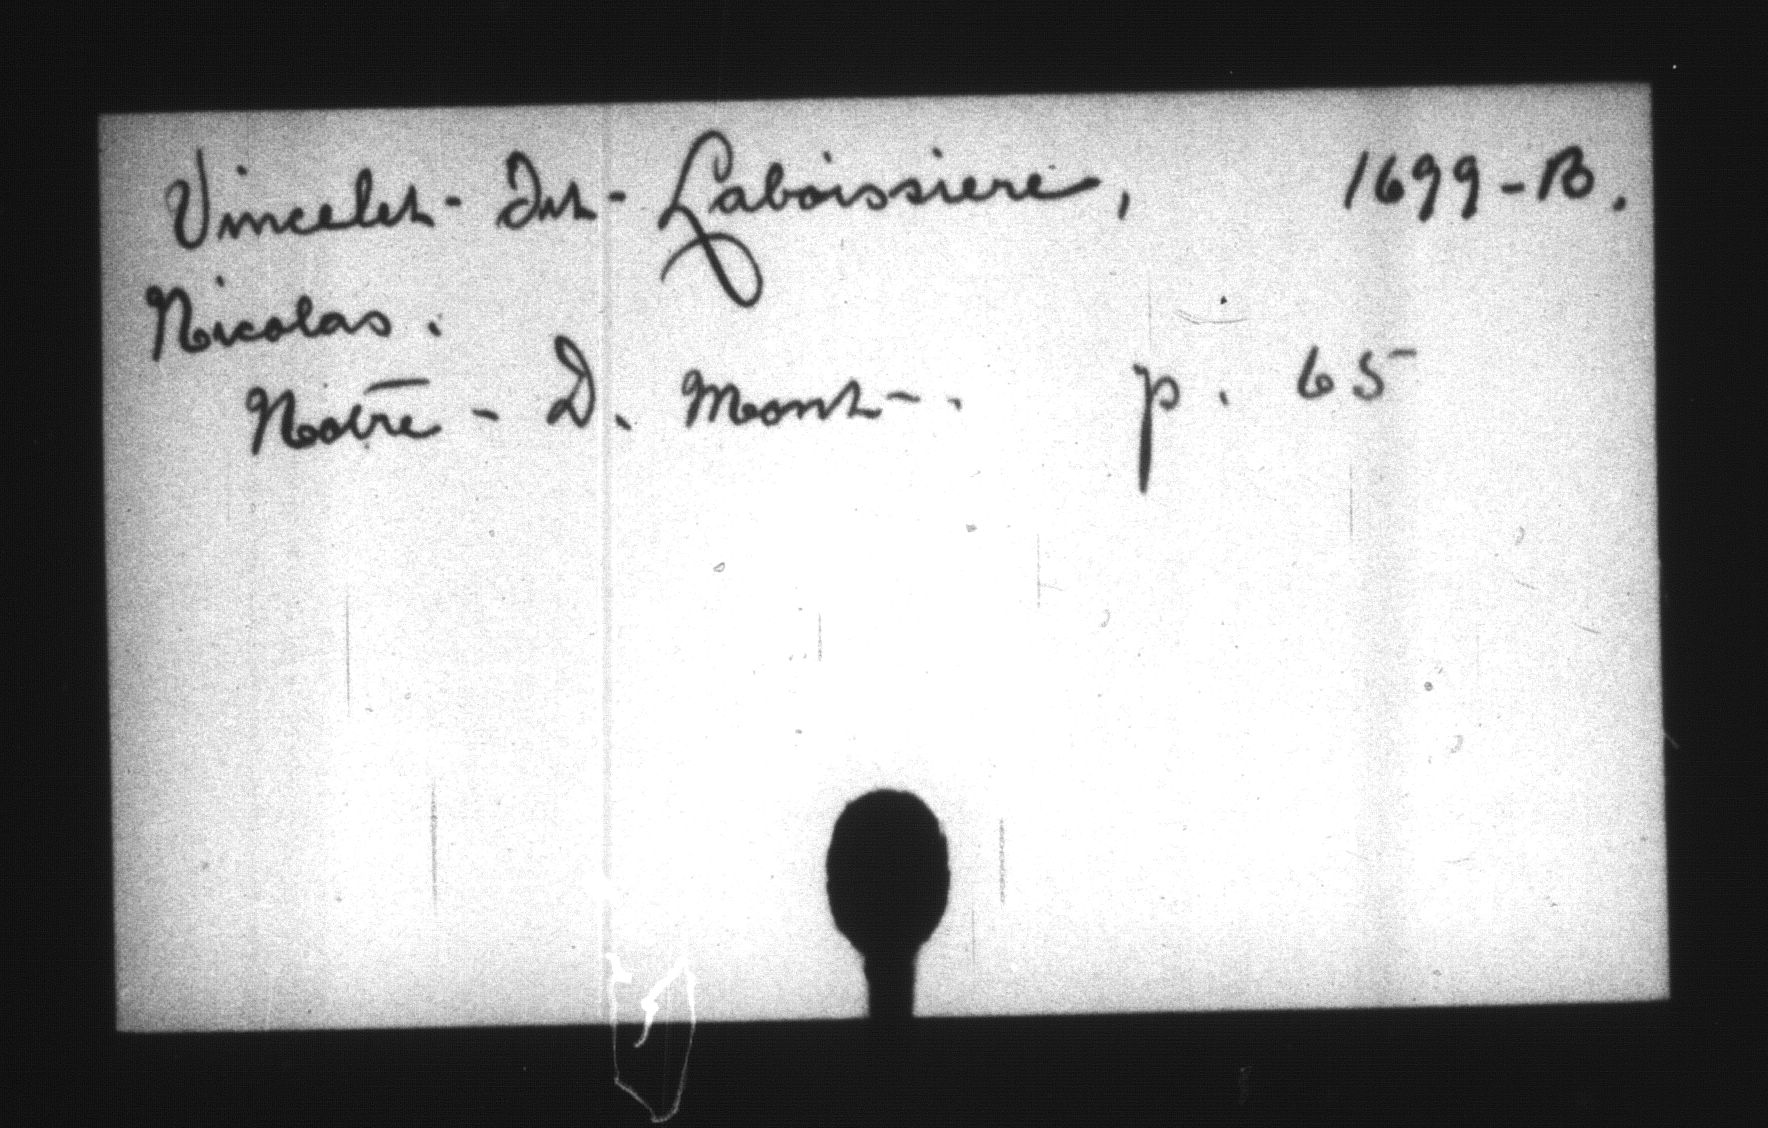 Vincelet-Dit-Laboissiere, 1699-B.
Nicolas.
Notre-D. Mont-. p. 65